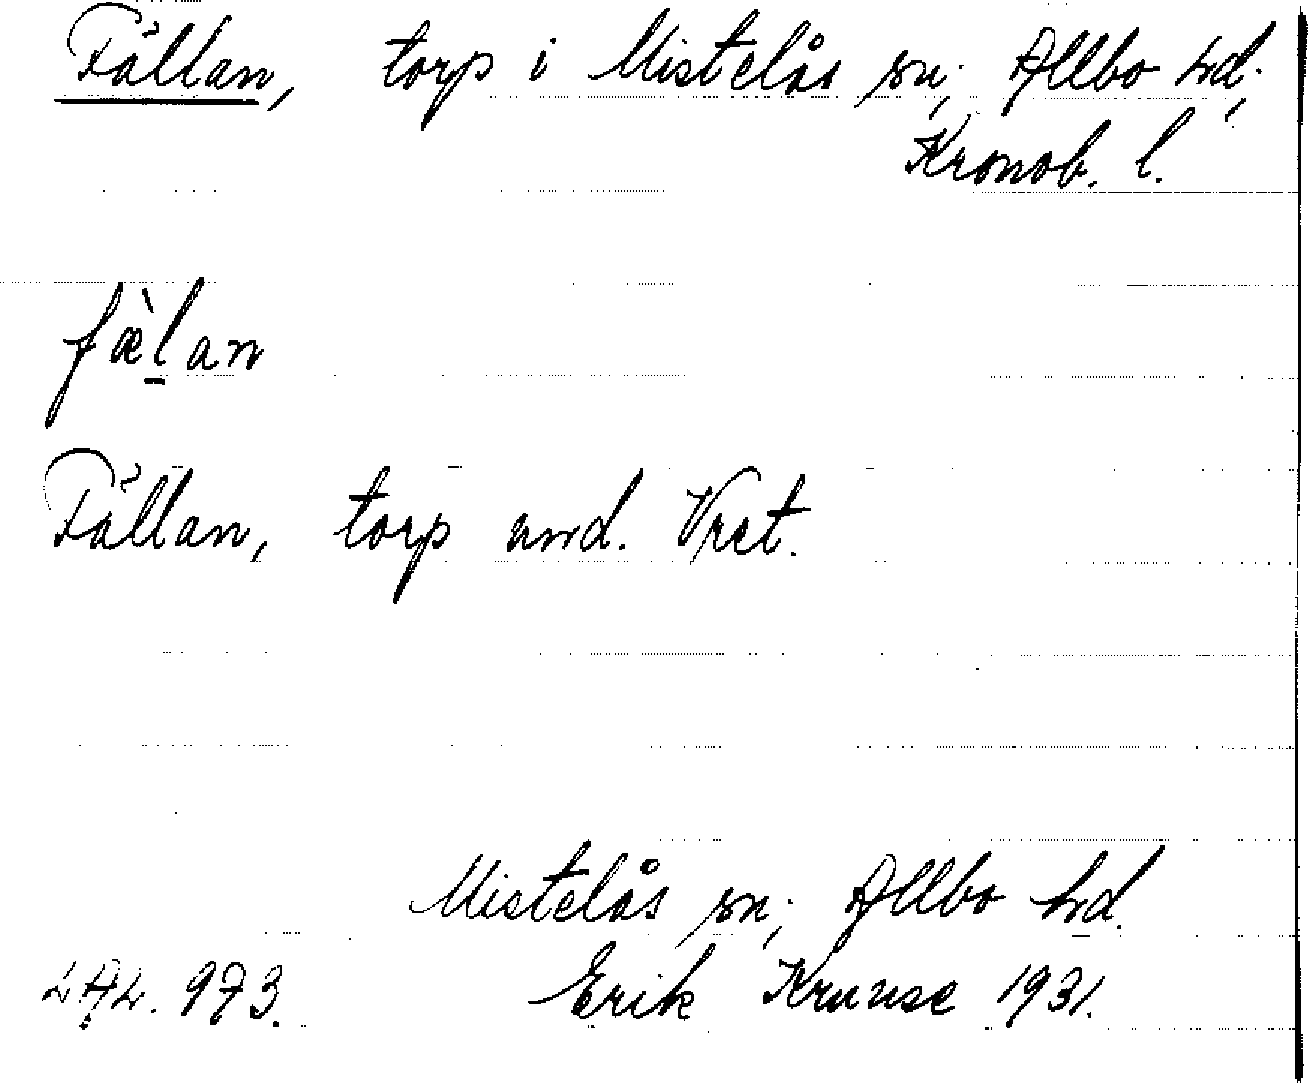 Fällan, torp i Mistelås sn; Allbo hd;
Kronob. l.
fæ̀l̠an
Fällan, torp und. Vret.
Mistelås sn; Allbo hd.
Erik Kruuse 1931.
973.